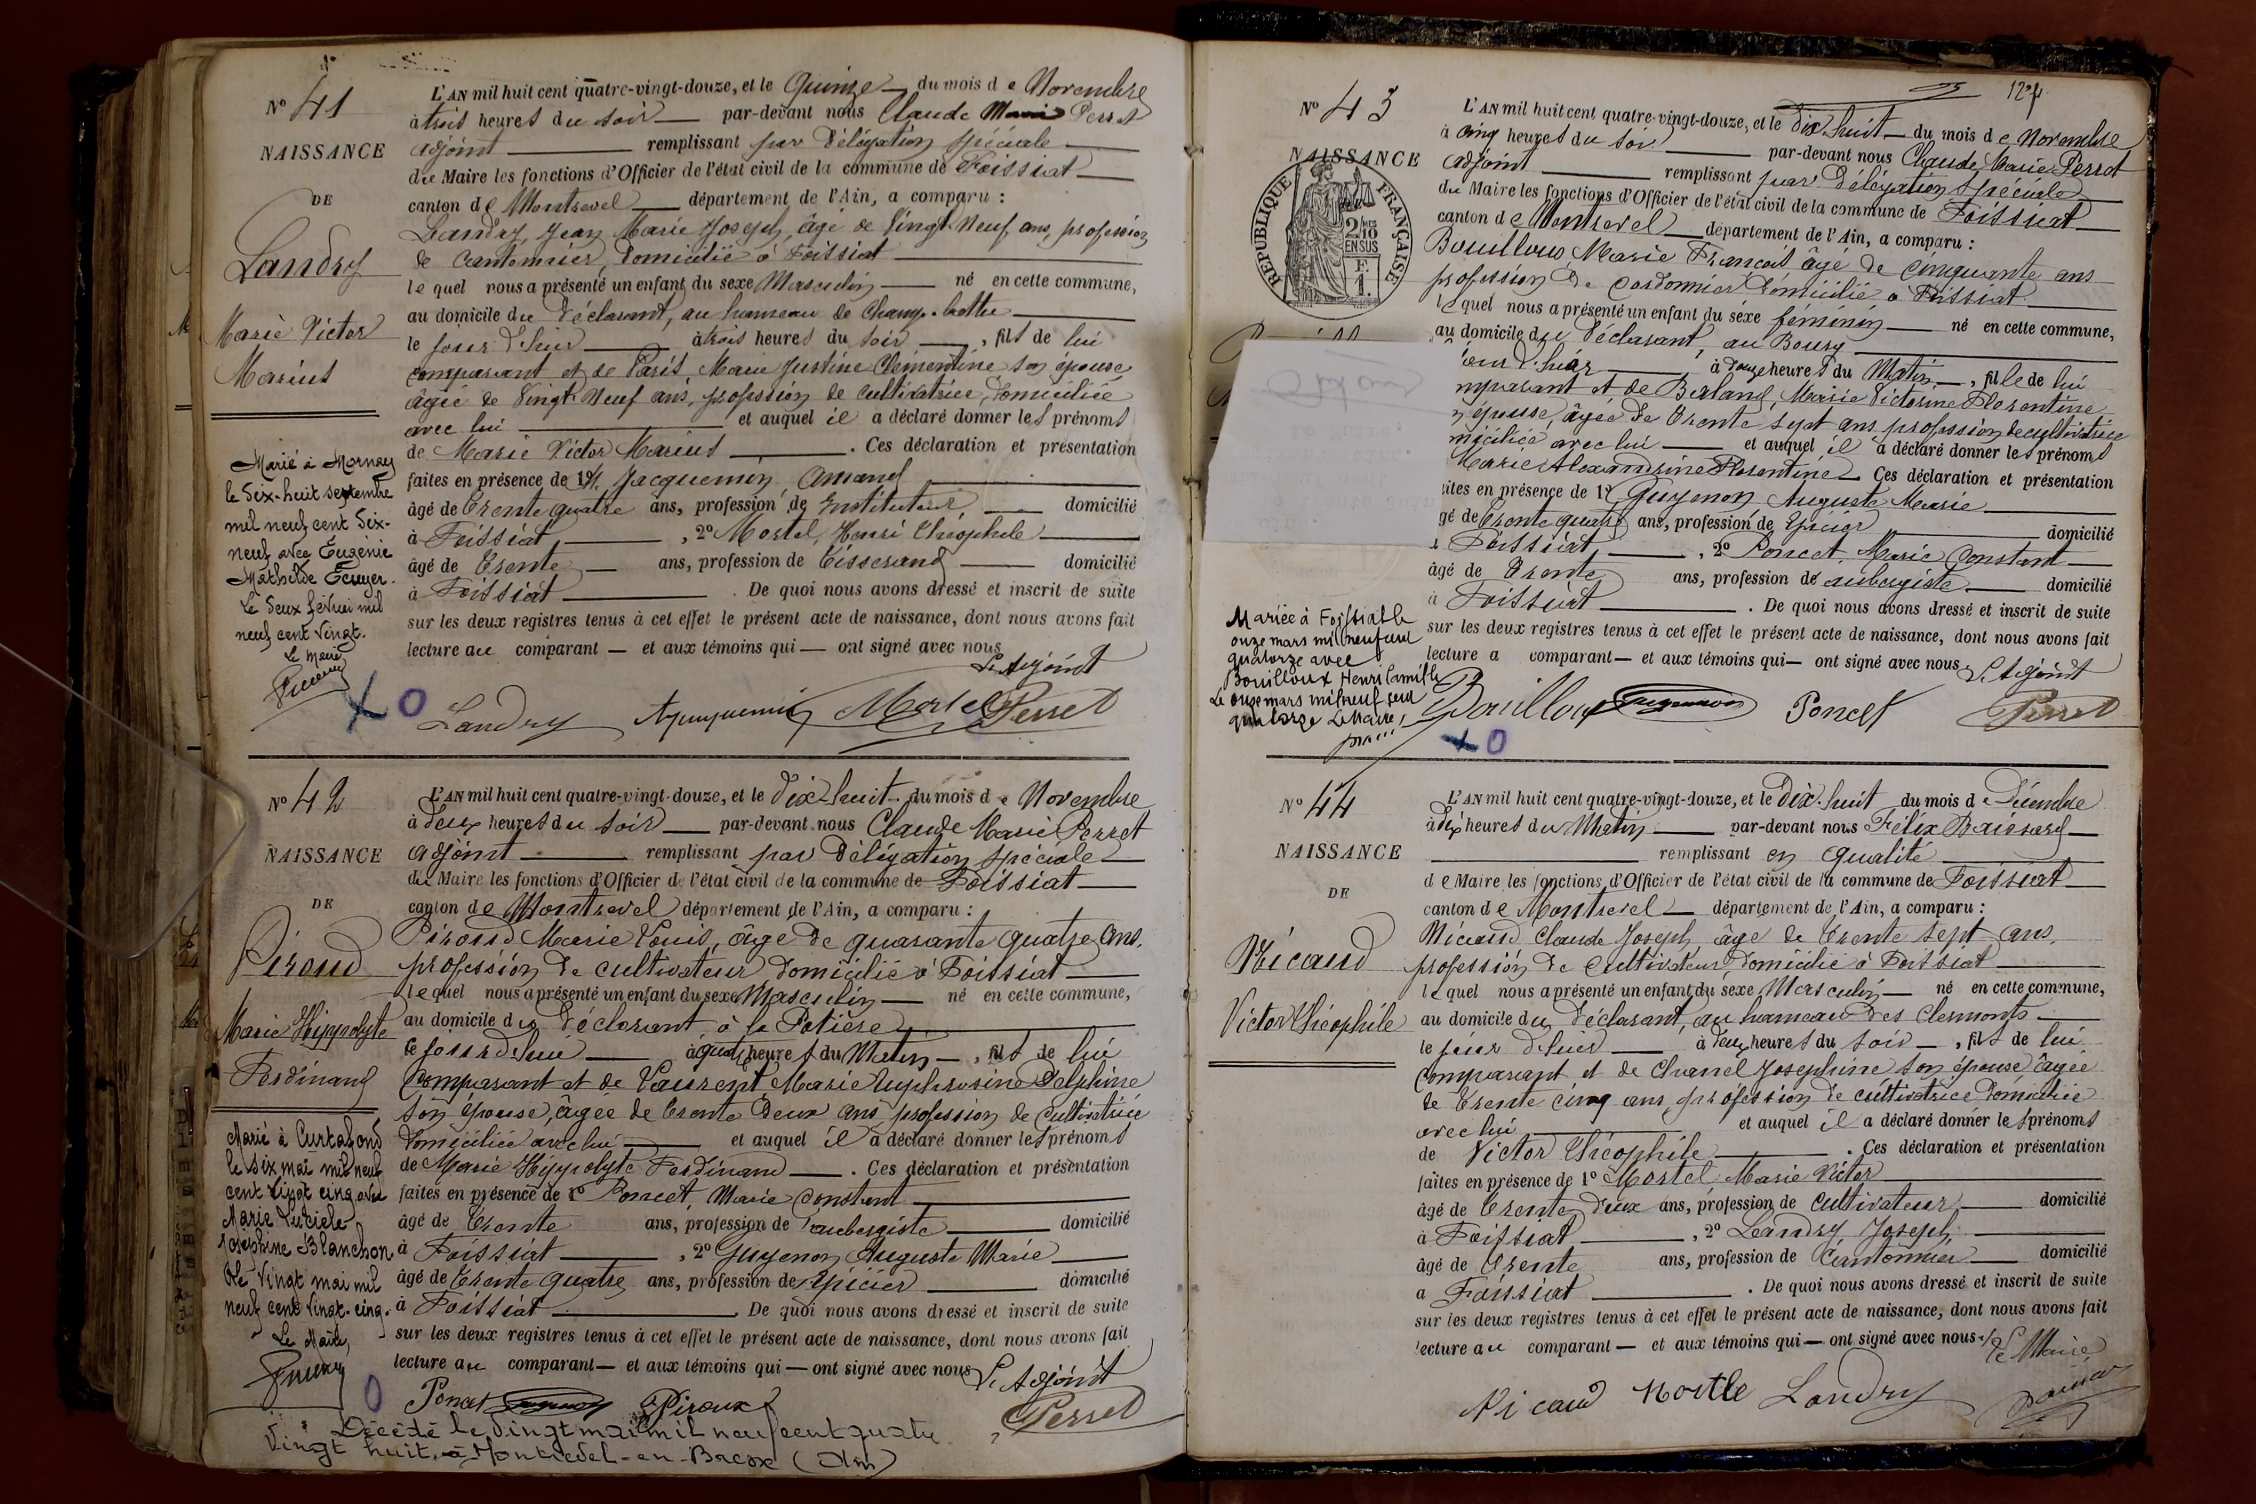 Nº 41
NAISSANCE
DE
Landry
Marie Victor
Marius
Marié à Mornay
le dix-huit septembre
mil neuf cent dix-
neuf avec Eugénie
Mathilde Ecuyer.
Le deux février mil
neuf cent vingt.
Le Maire
L'AN mil huit cent quatre-vingt-douze, et le quinze du mois de Novembre
à trois heures du soir par-devant nous Claude Marie Perret
adjoint remplissant par délégation spéciale
du Maire les fonctions d'Officier de l'état civil de la commune de Foissiat
canton de Montrevel département de l'Ain, a comparu :
Landry, Jean Marie Joseph, âgé de vingt neuf ans, profession
de cantonnier, domicilié à Foissiat
lequel nous a présenté un enfant du sexe Masculin né en cette commune,
au domicile du déclarant, au hameau de
le jour d'hier à trois heures du soir, fils de lui
comparant et de Paris Marie Justine Clémentine son épouse
âgée de vingt neuf ans, profession de cultivatrice, domiciliée
avec lui et auquel il a déclaré donner les prénoms
de Marie Victor Marius. Ces déclaration et présentation
faites en présence de 1º Jacquemin Amand
âgé de trente quatre ans, profession de Instituteur domicilié
à Foissiat, 2º Mortel, Henri Théophile
âgé de trente ans, profession de tisserand domicilié
à Foissiat. De quoi nous avons dressé et inscrit de suite
sur les deux registres tenus à cet effet le présent acte de naissance, dont nous avons fait
lecture au comparant et aux témoins qui ont signé avec nous
L'Adjoint
Landry Mortel Perret
X O
Nº 42
NAISSANCE
DE
Piroud
Marie Hippolyte
Ferdinand
Marié à Curtafond
le six mai mil neuf
cent vingt cinq avec
Marie Lucie
Joséphine Blanchon
le vingt mai mil
neuf cent vingt-cinq.
Le Maire,
L'AN mil huit cent quatre-vingt-douze, et le dix-huit du mois de Novembre
à deux heures du soir par-devant nous Claude Marie Perret
adjoint remplissant par délégation spéciale
du Maire les fonctions d'Officier de l'état civil de la commune de Foissiat
canton de Montrevel département de l'Ain, a comparu :
Piroud Marie Louis, âgé de quarante quatre ans,
profession de cultivateur domicilié à Foissiat
lequel nous a présenté un enfant du sexe Masculin né en cette commune,
au domicile du déclarant, à la Potière
le jour d'hui à quatre heures du Matin, fils de lui
comparant et de Laurent Marie Euphrosine Delphine
son épouse, âgée de trente deux ans profession de cultivatrice
domiciliée avec lui et auquel il a déclaré donner les prénoms
de Marie Hippolyte Ferdinand. Ces déclaration et présentation
faites en présence de 1º Poncet, Marie Constant
âgé de trente ans, profession de aubergiste domicilié
à Foissiat, 2º Guyenon Auguste Marie
âgé de trente quatre ans, profession de épicier domicilié
à Foissiat De quoi nous avons dressé et inscrit de suite
sur les deux registres tenus à cet effet le présent acte de naissance, dont nous avons fait
lecture au comparant et aux témoins qui ont signé avec nous
L'Adjoint
O Poncet Piroux Perret
Décédé le vingt mai mil neuf cent quatre
vingt huit à Montrevel-en-Bresse (Ain)
127
Nº 43
NAISSANCE
RÉPUBLIQUE FRANÇAISE
2/10
EN SUS
F.
1.
Mariée à Foissiat le
onze mars mil neuf cent
quatorze avec
Bouilloux Henri Camille
Le onze mars mil neuf cent
quatorze Le Maire,
L'AN mil huit cent quatre-vingt-douze, et le dix huit du mois de Novembre
à cinq heures du soir par-devant nous Claude Marie Perret
adjoint remplissant par délégation spéciale
du Maire les fonctions d'Officier de l'état civil de la commune de Foissiat
canton de Montrevel département de l'Ain, a comparu :
Bouilloux Marie François âgé de cinquante ans
profession de cordonnier domicilié à Foissiat
lequel nous a présenté un enfant du sexe féminin né en cette commune,
au domicile du déclarant, au Bourg
jour d'hier à douze heures du Matin, fille de lui
mparant et de Berland, Marie Victorine Florentine
n épouse, âgée de trente sept ans profession de cultivatrice
miciliée avec lui et auquel il a déclaré donner les prénoms
Marie Alexandrine Florentine Ces déclaration et présentation
ites en présence de 1º Guyenon Auguste Marie
gé de trente quatre ans, profession de épicier domicilié
à Foissiat, 2º Poncet Marie Constant
âgé de trente ans, profession de aubergiste domicilié
à Foissiat. De quoi nous avons dressé et inscrit de suite
sur les deux registres tenus à cet effet le présent acte de naissance, dont nous avons fait
lecture a comparant et aux témoins qui ont signé avec nous
L'Adjoint
Bouilloux Guyenon Poncet Perret
X O
Nº 44
NAISSANCE
DE
Nicaud
Victor Théophile
L'AN mil huit cent quatre-vingt-douze, et le dix-huit du mois de Décembre
à dix heures du Matin par-devant nous Félix
remplissant en qualité
de Maire les fonctions d'Officier de l'état civil de la commune de Foissiat
canton de Montrevel département de l'Ain, a comparu :
Nicaud Claude Joseph, âgé de trente sept ans,
profession de cultivateur domicilié à Foissiat
lequel nous a présenté un enfant du sexe Masculin né en cette commune,
au domicile du déclarant, au hameau des Clermonts
le jour d'hier à deux heures du soir, fils de lui
comparant et de Chanel Josephine son épouse âgée
de trente cinq ans, profession de cultivatrice domiciliée
avec lui et auquel il a déclaré donner les prénoms
de Victor Théophile. Ces déclaration et présentation
faites en présence de 1º Mortel Marie Victor
âgé de trente deux ans, profession de cultivateur domicilié
à Foissiat, 2º Landry Joseph
âgé de trente ans, profession de Cantonnier domicilié
à Foissiat. De quoi nous avons dressé et inscrit de suite
sur les deux registres tenus à cet effet le présent acte de naissance, dont nous avons fait
lecture au comparant et aux témoins qui ont signé avec nous
Le Maire
Nicaud Mortel Landry